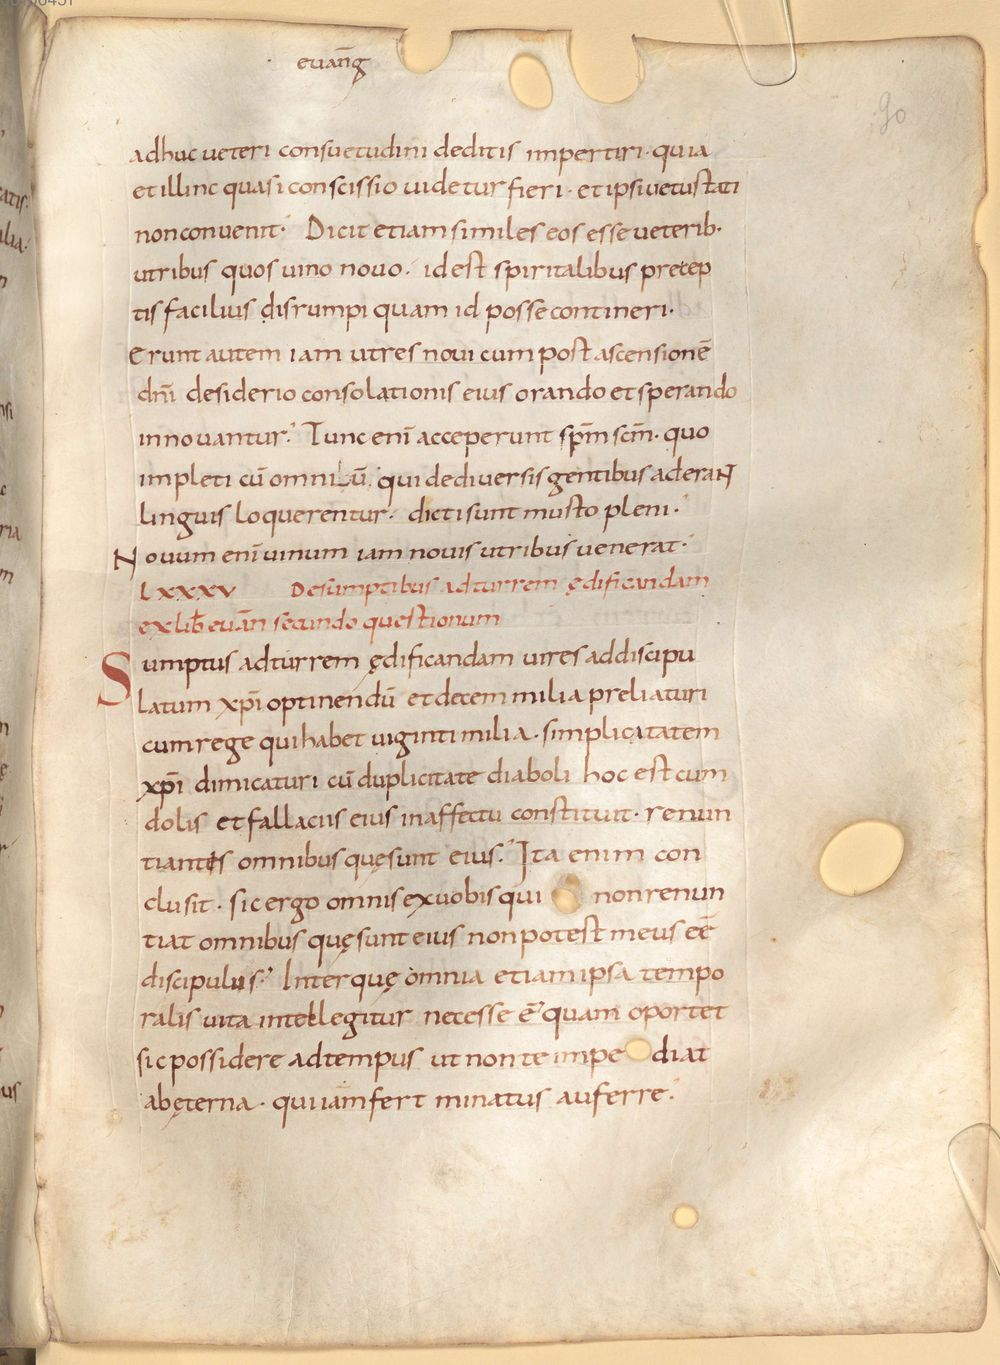 euang̅
90
adhuc ueteri consuetudini deditis impertiri · quia
et illinc quasi conscissio uidetur fieri · et ipsi uetustati
non conuenit · Dicit etiam similes eos esse ueterib·
utribus quos uino nouo · id est spiritalibus precep
tis facilius disrumpi quam id posse contineri ·
Erunt autem iam utres noui cum post ascensionē
dn̄i desiderio consolationis eius orando et sperando
innouantur · Tunc enī acceperunt sp̄m sc̄m · quo
impleti cū omnibū qui de diuersis gentibus aderant
linguis loquerentur · dicti sunt musto pleni ·
Nouum enī uinum iam nouis utribus uenerat ·
LXXXV De sumptibus ad turrem ędificandam
ex lib̄ euan̄ secundo questionum
Sumptus ad turrem ędificandam uires ad discipu
latum xp̄i optinendū et decem milia preliaturi
cum rege qui habet uiginti milia · simplicitatem
xp̄i dimicaturi cū duplicitate diaboli hoc est cum
dolis et fallaciis eius in affectu constituit · renun
tiantes omnibus quę sunt eius · Ita enim con
clusit · sic ergo omnis ex uobis qui non renun
tiat omnibus quę sunt eius non potest meus eē
discipulus · Inter quę omnia etiam ipsa tempo
ralis uita intellegitur necesse ē quam oportet
sic possidere ad tempus ut non te impediat
ab ęterna · qui iam fert minatus auferre ·